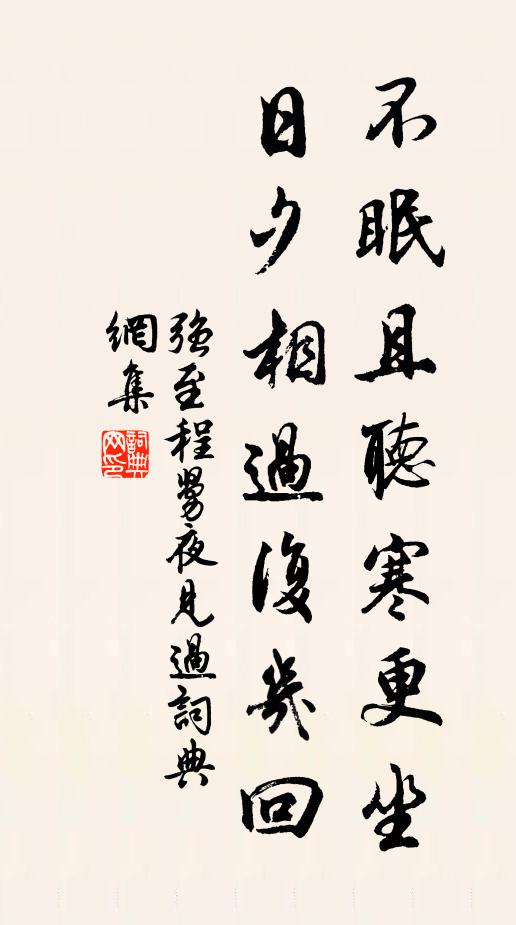 不眠且聽寒更坐
日夕相過復幾回
強至程舅夜見過詞典
網集
詞典
網印